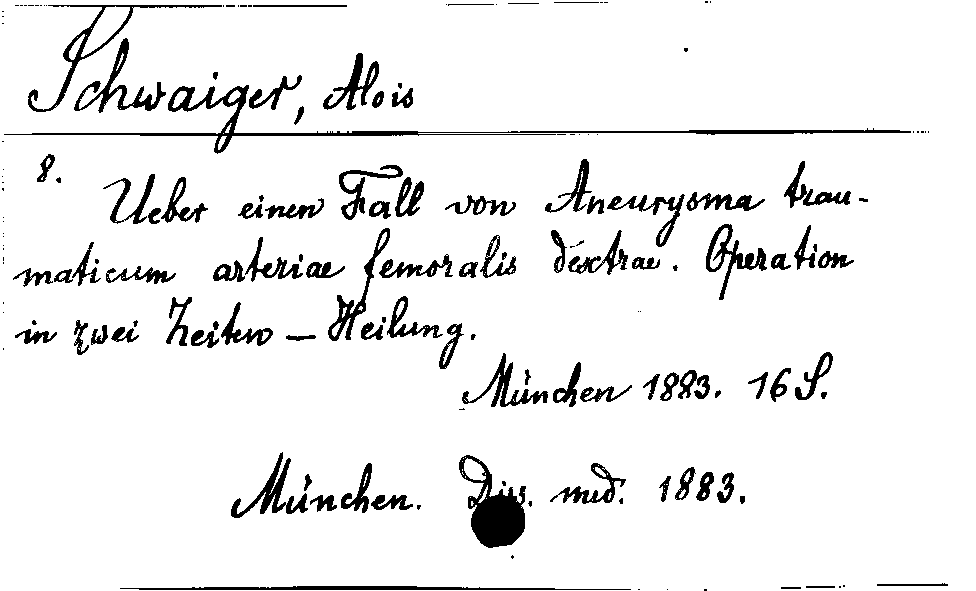 Schwaiger, Alois
8.
Ueber einen Fall von Aneurysma trau-
maticum arteriae femoralis dextrae. Operation
in zwei Zeiten – Heilung.
München 1883. 16 S.
München. Diss. med. 1883.